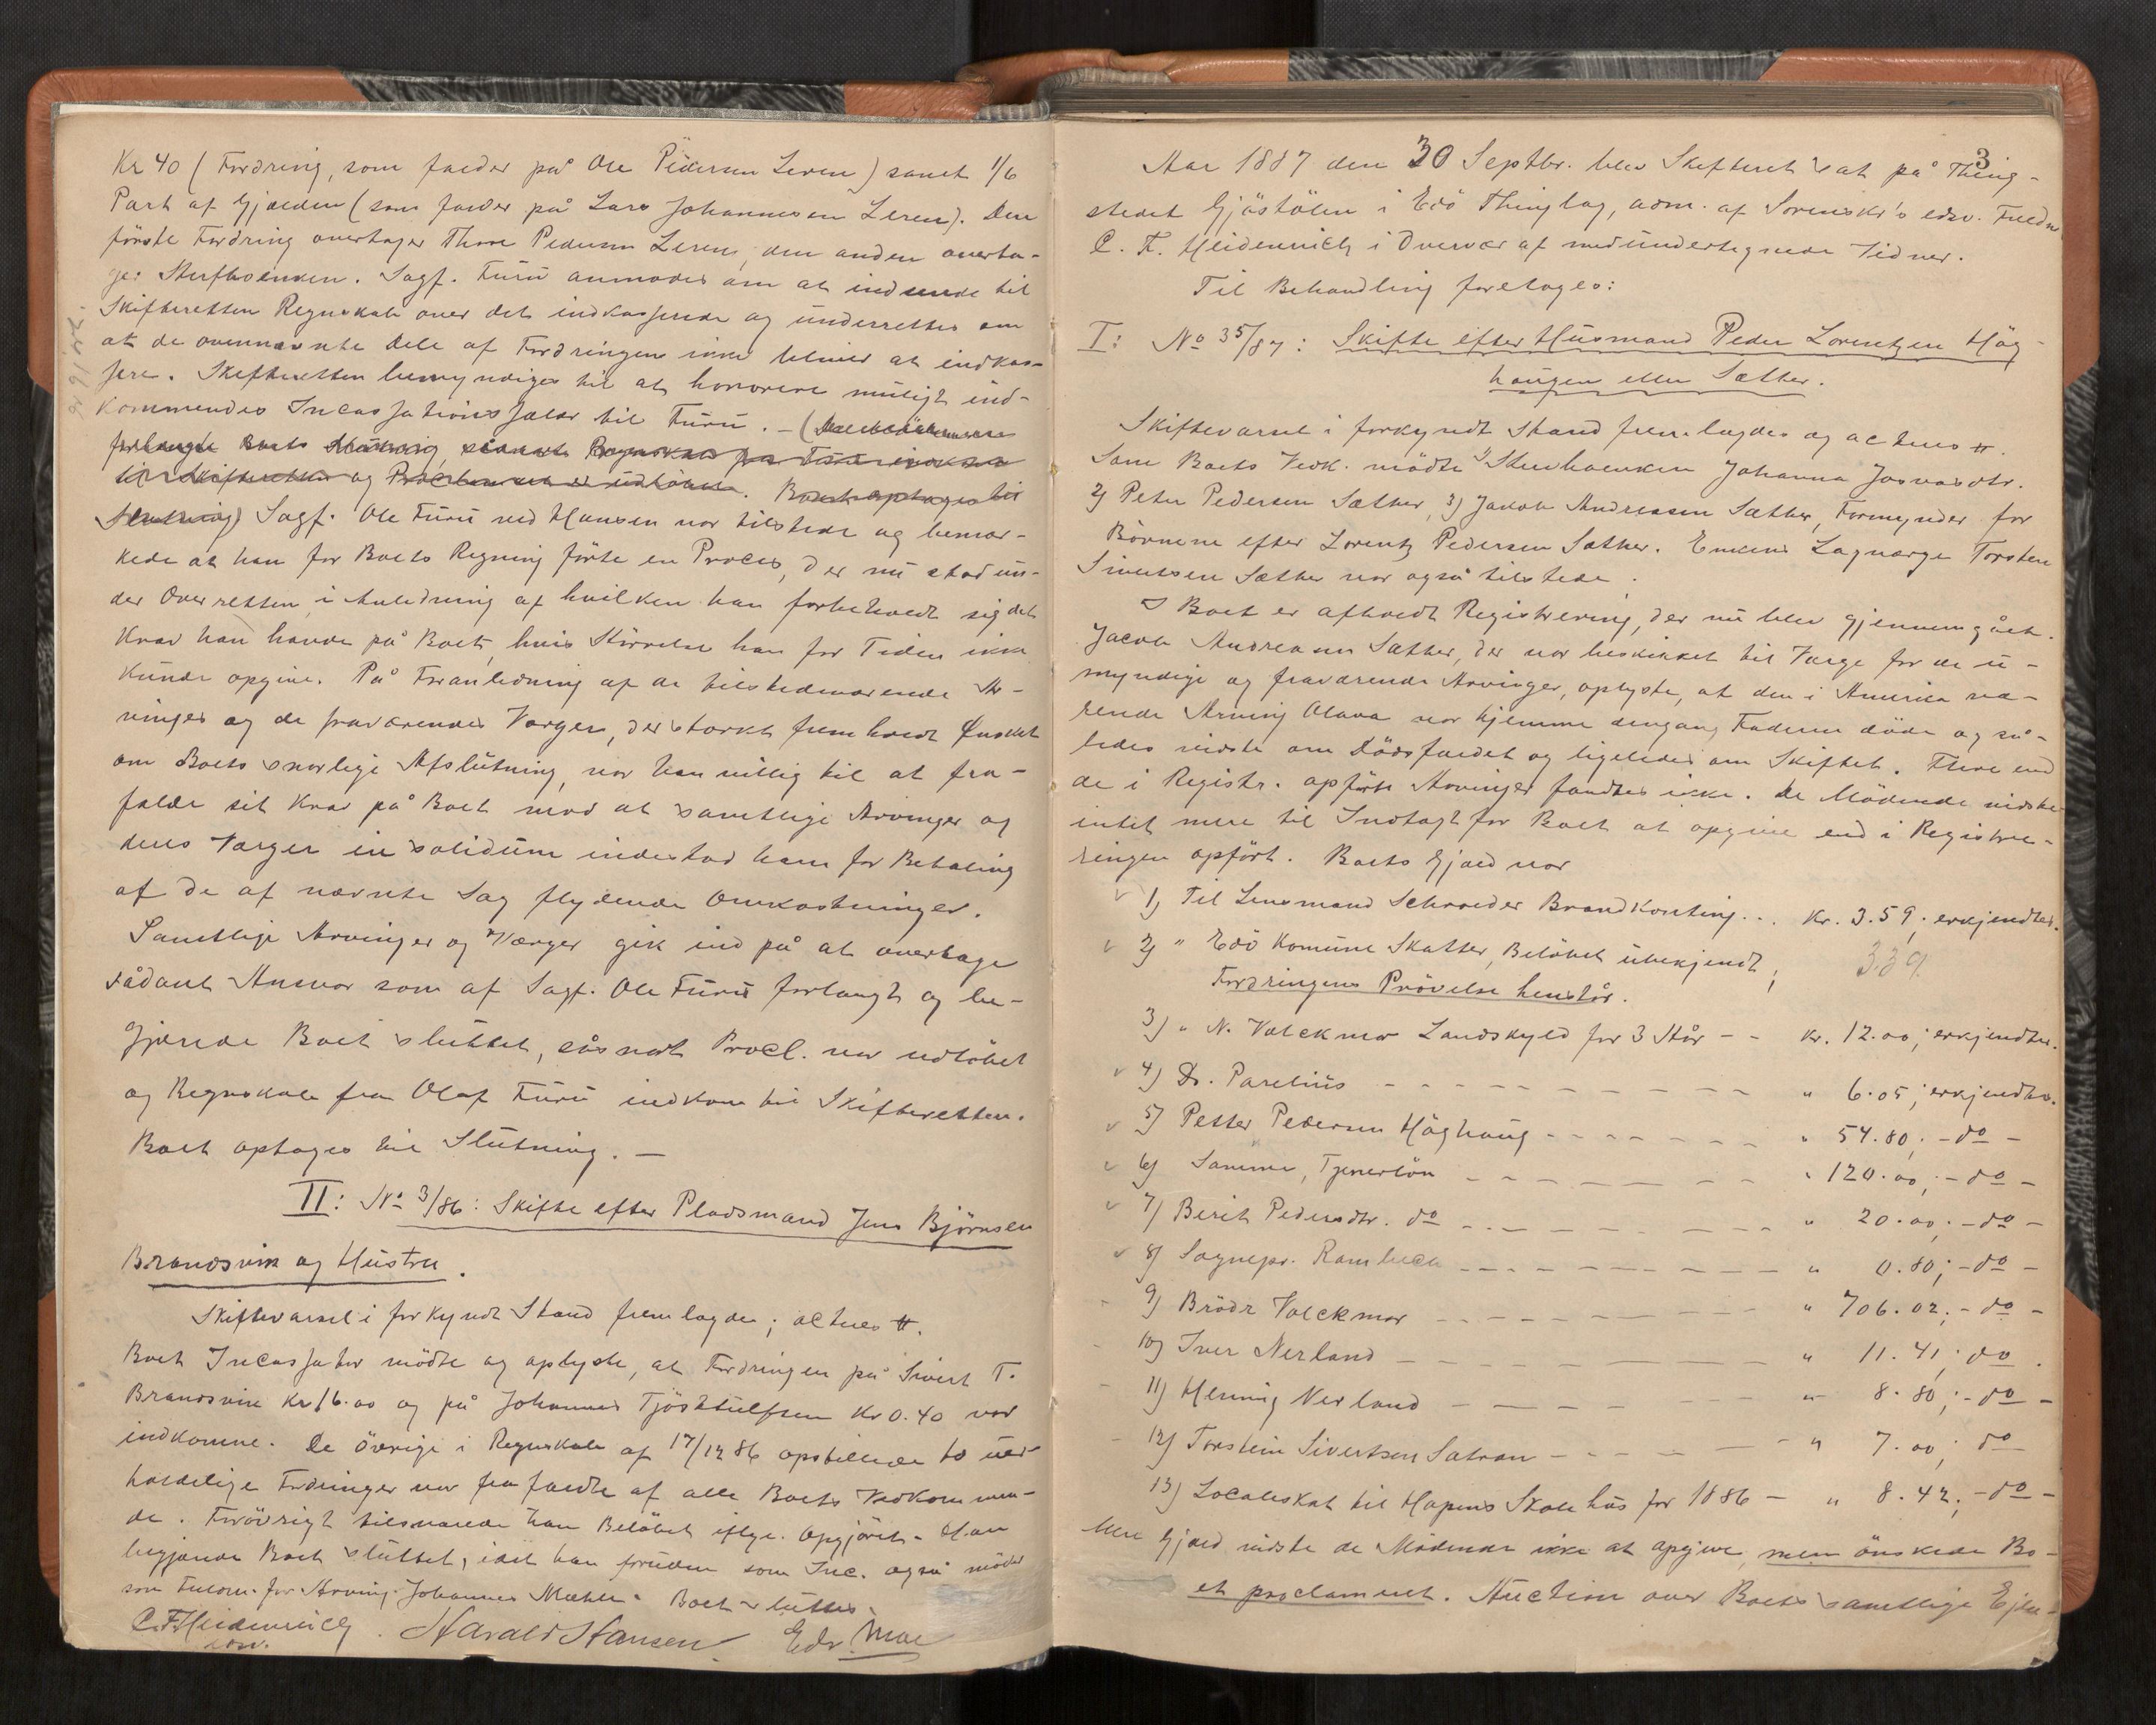 Kr 40 (Fordring, som falder på Ole Pedersen Leren) samt 1/6
Part af Gjælden (som falder på Lars Johannesen Leren). Den
første Fordring overtager Thore Pedersen Leren, den anden overta-
ger Stervboenken. Sagf. Furu anmodes om at indsende til
Skifteretten Regnskab over det indkasserede og underrettes om
at de ovennævnte Dele af Fordringen ikke bliver at indkas-
sere. Skifteretten bemyndiges til at honorere muligt ind-
kommende Incassationssalær til Furu. – (De Mødende
forlangte Boets Slutning, såsnart Regnskab fra Furu indkom
til Skifteretten og Proclamaet er udløbet. Boet optages til
Slutning) Sagf. Ole Furu ved Hansen var tilstede og bemær-
kede at han for Boets Regning førte en Proces, der nu stod un-
der Overretten i Anledning af hvilken han forbeholdt sig det
Krav han havde på Boet, hvis Størrelse han for Tiden ikke
kunde opgive. På Foranledning af de tilstedeværende Ar-
vinger og de fraværendes Værger, der stærkt fremholdt Ønsket
om Boets snarlige Afslutning, var han villig til at fra-
falde sit Krav på Boet mod at samtlige Arvinger og
deres Værger in solidum indestod ham for Betaling
af de af nævnte Sag flydende Omkostninger.
Samtlige Arvinger og Værger gik ind på at overtage
sådant Ansvar som af Sagf. Ole Furu forlangt og be-
gjærede Boet sluttet, såsnart Procl. var udløbet
og Regnskab fra Olaf Furu indkom til Skifteretten.
Boet optages til Slutning. —
II: No 3/86: Skifte efter Pladsmand Jens Bjørnsen
Brandsvik og Hustru.
Skiftevarsel i forkyndt Stand fremlagdes; acteres #.
Boets Incassator mødte og oplyste, at Fordringen på Sivert T.
Brandsvik Kr 16.00 og på Johannes Tjøstulfsen Kr 0.40 var
indkomne. De øvrige i Regnskab af 17/12 86 opstillede to uer-
holdelige Fordringer var frafaldte af alle Boets Vedkommen-
de. Forøvrigt tilsvarede han Beløbet ifølge Opgjøret. Han
begjærede Boet sluttet, idet han foruden som Inc. også mødte
som Fuldm. for Arving Johannes Mæhle. Boet sluttes.
C.F. Heidenreich. Harald Hansen Edv. Moe
const.
3
Aar 1887 den 30 Septbr. blev Skifteret sat på Thing-
stedet Gjøstølen i Edø Thinglag, adm. af Sorenskr's edsv. Fuldm.
C. F. Heidenreich i Overvær af medundertegnede Vidner.
Til Behandling foretoges:
I: No 35/87: Skifte efter Husmand Peder Lorentzen Høg-
haugen eller Sæther.
Skiftevarsel i forkyndt Stand fremlagdes og acteres #.
Som Boets Vedk. mødte 1) Stervboenken Johanna Jonasdtr.
2) Peter Pedersen Sæther, 3) Jacob Andreasen Sæther, Formynder for
Børnene efter Lorentz Pedersen Sæther. Enkens Lagværge Torsten
Sivertsen Sæther var også tilstede.
I Boet er afholdt Registrering, der nu blev gjennemgået.
Jacob Andreasen Sæther, der var beskikket til Værge for de u-
myndige og fraværende Arvinger, oplyste, at den i Amerika væ-
rende Arving Olava var hjemme dengang Faderen døde og så-
ledes vidste om Dødsfaldet og ligeledes om Skiftet. Flere end
de i Registr. opførte Arvinger fandtes ikke. De Mødende vidste
intet mere til Indtægt for Boet at opgive end i Registre-
ringen opført. Boets Gjæld var
1) Til Lensmand Schrøder Brandkonting... Kr. 3.59; erkjendtes.
2) " Edø Komune Skatter, Beløbet ubekjendt; 3.39
Fordringens Prøvelse henstår.
3) " N. Volckmar Landskyld for 3 Aar - - Kr. 12.00; erkjendtes.
4) Dr. Parelius - - - - " 6.05; erkjendtes.
5) Petter Pedersen Høghaug - - - - " 54.80; - do -
6) Samme, Tjenerløn - - - - " 120.00; - do -
7) Berit Pedersdtr. do - - - - " 20.00; - do -
8) Sognepr. Rambech - - - - " 0.80; - do -
9) Brødr Volckmar - - - - " 706.02; - do -
10) Iver Nerland - - - - " 11.41; do.
11) Henning Nerland - - - - " 8.80; - do -
12) Torstein Sivertsen Satran - - - - " 7.00; do
13) Localeskat til Hopens Skolehus for 1886 - " 8.42; - do -
Mere Gjæld vidste de Mødende ikke at opgive, men ønskede Bo-
et proclameret. Auction over Boets samtlige Ejen-